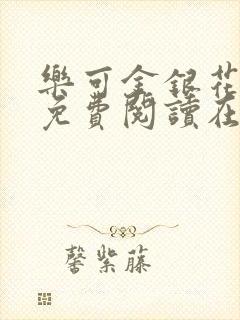 樂可金銀花
免費閱讀在
馨紫藤